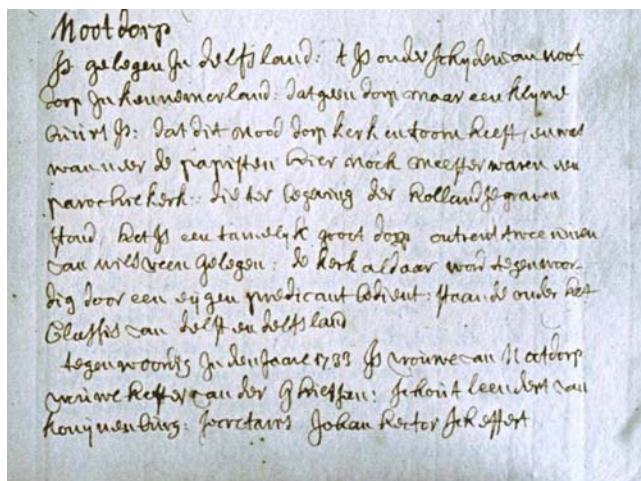 Nootdorp
Is gelegen In delfsland: t Is onderschyden van noot
dorp In kennemerland: dat geen dorp maar een klyne
buurt Is: dat dit nood dorp kerk en toorn heeft, en was
wanneer de papisten hier noch meester waren een
parochie kerk: die ter begeving der hollandse graven
stond, het Is een tamelyk groot dorp omtrent twee uuren
van wilsveen gelegen: de kerk aldaar word tegenwoor-
dig door een eygen predicant bedient: staande onder het
Classis van delft en delfsland
tegenwoordig In den Jaare 1733 Is vrouwe van Nootdorp
vrouwe hester van der: schout leendert van
konynenburg: secretaris Johan hector scheffert